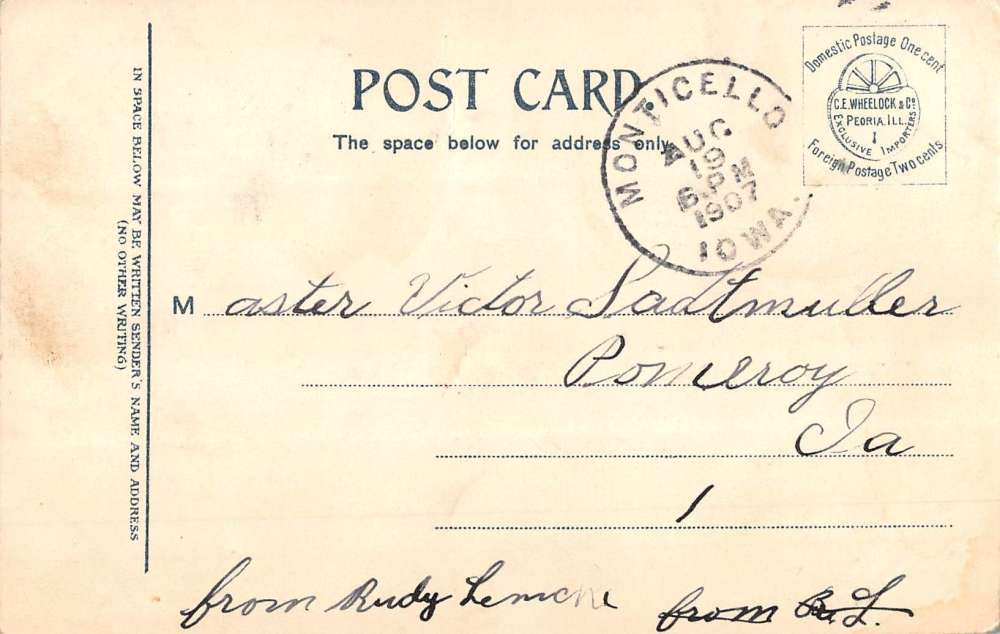 POST CARD
The space below for address only.
Domestic Postage One cent
C.E. WHEELOCK & Co
PEORIA, ILL.
EXCLUSIVE IMPORTERS
Foreign Postage Two cents
MONTICELLO
AUG
19
6-PM
1907
IOWA.
IN SPACE BELOW MAY BE WRITTEN SENDER'S NAME AND ADDRESS
(NO OTHER WRITING)
Master Victor Sadtmuller
Pomeroy
Ia
1
from Rudy Lemcke
from R. L.